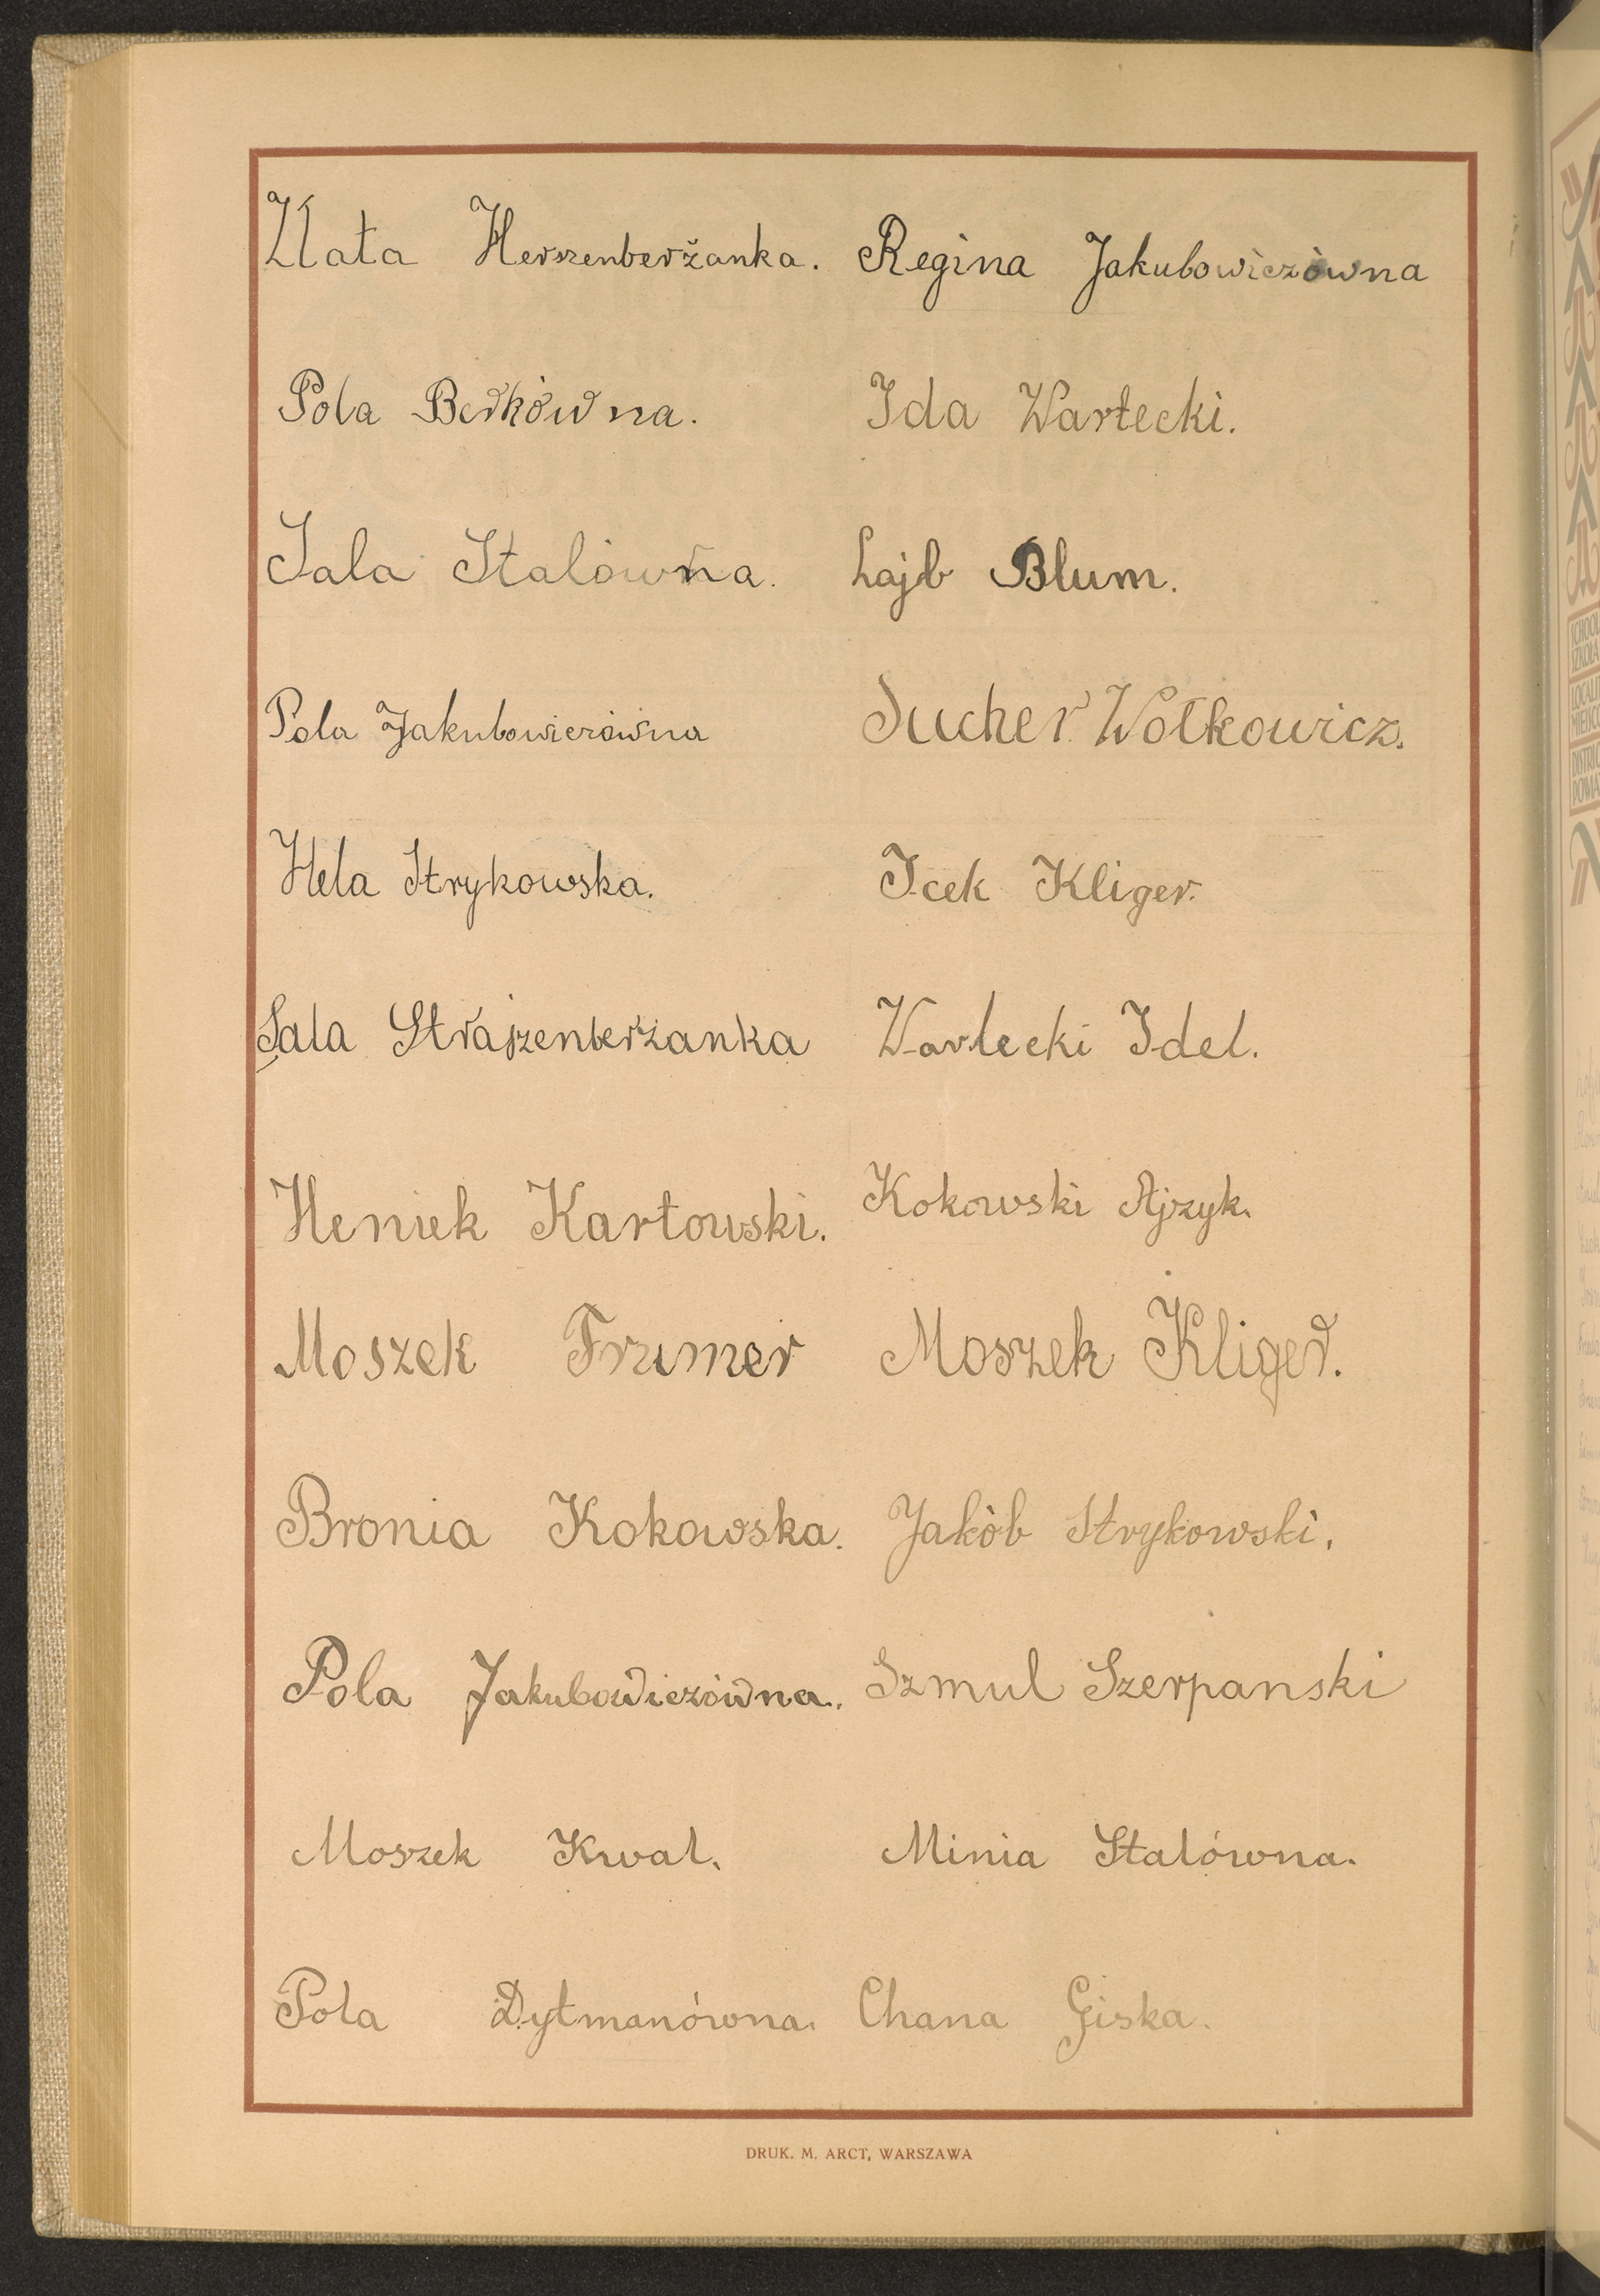 Złata Herszenberżanka.
Pola Berkówna.
Sala Stalówna.
Pola Jakubowiczówna
Hela Strykowska.
Sala Strajzenberżanka
Heniek Kartowski.
Moszek Frumer
Bronia Kokowska.
Pola Jakubowiczówna.
Moszek Kwal.
Pola Dytmanówna.
Regina Jakubowiczówna
Ida Wartecki.
Lajb Blum.
Sucher Wołkowicz.
Icek Kliger.
Warlecki Idel.
Kokowski Ajzyk.
Moszek Kliger.
Jakób Strykowski.
Szmul Szerpanski
Minia Stalówna.
Chana Giska.
DRUK. M. ARCT, WARSZAWA